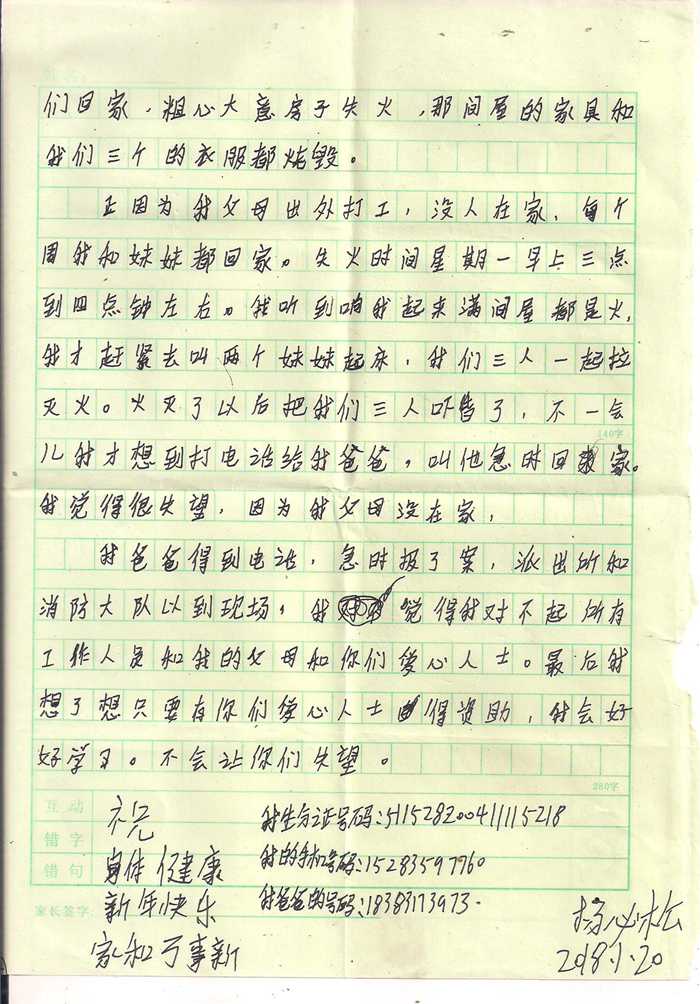 们回家，粗心大意房子失火，那间屋的家具和
我们三个的衣服都烧毁。
正因为我父母出外打工，没人在家，每个
周我和妹妹都回家。失火时间星期一早上三点
到四点钟左右。我听到响我起来满间屋都是火，
我才赶紧去叫两个妹妹起床，我们三人一起拉
灭火。火灭了以后把我们三人吓昏了，不一会
140字
儿我才想到打电话给我爸爸，叫他急时回家。
我觉得很失望，因为我父母没在家，
我爸爸得到电话，急时报了案，派出所和
消防大队以到现场，我觉得我对不起所有
工作人员和我的父母和你们爱心人士。最后我
想了想只要有你们爱心人士得资助，我会好
好学习。不会让你们失望。
280字
互动
错字
错句
家长签字:
祝
身体健康
新年快乐
家和万事新
我生分证号码:511528200411115218
我的手机号码:15283597760
我爸爸的号码:18383173973.
杨必松
2018.1.20